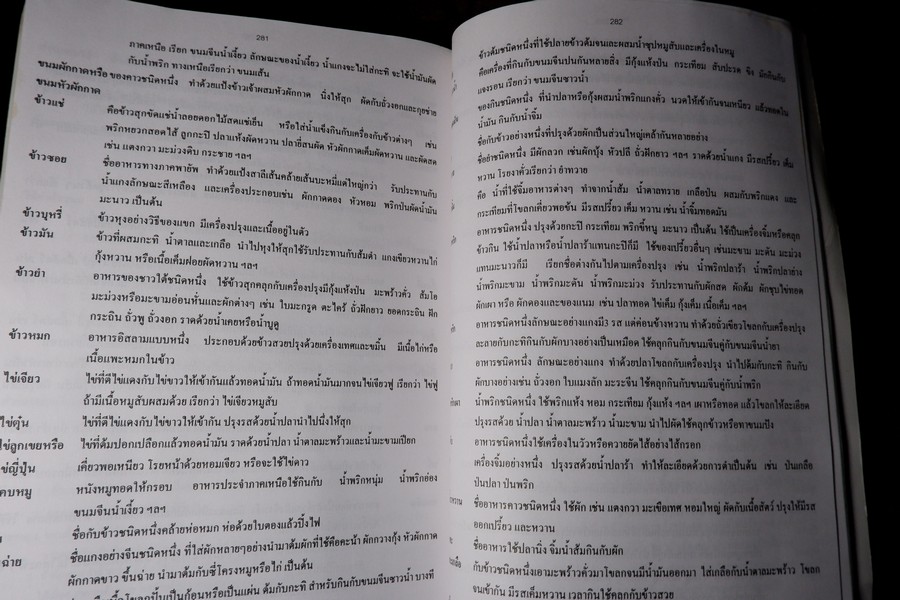 281
ภาคเหนือ เรียก ขนมจีนน้ำเงี้ยว ลักษณะของน้ำเงี้ยว น้ำแกงจะไม่ใส่กะทิ จะใช้น้ำมันผัด
กับน้ำพริก ทางเหนือเรียกว่า ขนมเส้น
ขนมผักกาดหรือ ของคาวชนิดหนึ่ง ทำด้วยแป้งข้าวเจ้าผสมหัวผักกาด นึ่งให้สุก ผัดกับถั่วงอกและกุยช่าย
ขนมหัวผักกาด
ข้าวแช่ คือข้าวสุกขัดแช่น้ำลอยดอกไม้สดแช่เย็น หรือใส่น้ำแข็งกินกับเครื่องกับข้าวต่างๆ เช่น
พริกหยวกสอดไส้ ลูกกะปิ ปลาแห้งผัดหวาน ปลายี่สนผัด หัวผักกาดเค็มผัดหวาน และผักสด
เช่น แตงกวา มะม่วงดิบ กระชาย ฯลฯ
ข้าวซอย ชื่ออาหารทางภาคพายัพ ทำด้วยแป้งสาลีเส้นคล้ายเส้นบะหมี่แต่ใหญ่กว่า รับประทานกับ
น้ำแกงลักษณะสีเหลือง และเครื่องประกอบเช่น ผักกาดดอง หัวหอม พริกป่นผัดน้ำมัน
มะนาว เป็นต้น
ข้าวบุหรี่ ข้าวหุงอย่างวิธีของแขก มีเครื่องปรุงและเนื้ออยู่ในตัว
ข้าวมัน ข้าวที่ผสมกะทิ น้ำตาลและเกลือ นำไปหุงให้สุกใช้รับประทานกับส้มตำ แกงเขียวหวานไก่
กุ้งหวาน หรือเนื้อเค็มฝอยผัดหวาน ฯลฯ
ข้าวยำ อาหารของชาวใต้ชนิดหนึ่ง ใช้ข้าวสุกคลุกกับเครื่องปรุงมีกุ้งแห้งป่น มะพร้าวคั่ว ส้มโอ
มะม่วงหรือมะขามอ่อนหั่นและผักต่างๆ เช่น ใบมะกรูด ตะไคร้ ถั่วฝักยาว ยอดกระถิน ฝัก
กระถิน ถั่วพู ถั่วงอก ราดด้วยน้ำเคยหรือน้ำบูดู
ข้าวหมก อาหารอิสลามแบบหนึ่ง ประกอบด้วยข้าวสวยปรุงด้วยเครื่องเทศและขมิ้น มีเนื้อไก่หรือ
เนื้อแพะหมกในข้าว
ไข่เจียว ไข่ที่ตีไข่แดงกับไข่ขาวให้เข้ากันแล้วทอดน้ำมัน ถ้าทอดน้ำมันมากจนไข่เจียวฟู เรียกว่า ไข่ฟู
ถ้ามีเนื้อหมูสับผสมด้วย เรียกว่า ไข่เจียวหมูสับ
ไข่ตุ๋น ไข่ที่ตีไข่แดงกับไข่ขาวให้เข้ากัน ปรุงรสด้วยน้ำปลานำไปนึ่งให้สุก
ไข่ลูกเขยหรือ ไข่ที่ต้มปอกเปลือกแล้วทอดน้ำมัน ราดด้วยน้ำปลา น้ำตาลมะพร้าวและน้ำมะขามเปียก
ไข่ญี่ปุ่น เคี่ยวพอเหนียว โรยหน้าด้วยหอมเจียว หรือจะใช้ไข่ดาว
คบหมู หนังหมูทอดให้กรอบ อาหารประจำภาคเหนือใช้กินกับ น้ำพริกหนุ่ม น้ำพริกอ่อง
ขนมจีนน้ำเงี้ยว ฯลฯ
ชื่อกับข้าวชนิดหนึ่งคล้ายห่อหมก ห่อด้วยใบตองแล้วปิ้งไฟ
ฉ่าย ชื่อแกงอย่างจีนชนิดหนึ่ง ที่ใส่ผักหลายๆอย่างนำมาต้มผักที่ใช้คือคะน้า ผักกวางตุ้ง หัวผักกาด
ผักกาดขาว ขึ้นฉ่าย นำมาต้มกับซี่โครงหมูหรือไก่ เป็นต้น
เนื้อโขลกปั้นเป็นก้อนหรือเป็นแผ่น ต้มกับกะทิ สำหรับกินกับขนมจีนซาวน้ำ บางที
282
ข้าวต้มชนิดหนึ่งที่ใช้ปลายข้าวต้มจนและผสมน้ำซุปหมูสับและเครื่องในหมู
คือเครื่องที่กินกับขนมจีนปนกันหลายสิ่ง มีกุ้งแห้งป่น กระเทียม สับปะรด ขิง มีดกินกับ
แจงรอน เรียกว่า ขนมจีนซาวน้ำ
ของกินชนิดหนึ่ง ที่นำปลาหรือกุ้งผสมน้ำพริกแกงคั่ว นวดให้เข้ากันจนเหนียว แล้วทอดใน
น้ำมัน กินกับน้ำจิ้ม
ชื่อกับข้าวอย่างหนึ่งที่ปรุงด้วยผักเป็นส่วนใหญ่เคล้ากันหลายอย่าง
ชื่อยำชนิดหนึ่ง มีผักลวก เช่นผักบุ้ง หัวปลี ถั่วฝักยาว ฯลฯ ราดด้วยน้ำแกง มีรสเปรี้ยว เค็ม
หวาน โรยงาคั่วเรียกว่า ยำทวาย
คือ น้ำที่ใช้จิ้มอาหารต่างๆ ทำจากน้ำส้ม น้ำตาลทราย เกลือป่น ผสมกับพริกแดง และ
กระเทียมที่โขลกเคี่ยวพอข้น มีรสเปรี้ยว เค็ม หวาน เช่น น้ำจิ้มทอดมัน
อาหารชนิดหนึ่ง ปรุงด้วยกะปิ กระเทียม พริกขี้หนู มะนาว เป็นต้น ใช้เป็นเครื่องจิ้มหรือคลุก
ข้าวกิน ใช้น้ำปลาหรือน้ำปลาร้าแทนกะปิก็มี ใช้ของเปรี้ยวอื่นๆ เช่นมะขาม มะดัน มะม่วง
แทนมะนาวก็มี เรียกชื่อต่างกันไปตามเครื่องปรุง เช่น น้ำพริกปลาร้า น้ำพริกปลาย่าง
น้ำพริกมะขาม น้ำพริกมะดัน น้ำพริกมะม่วง รับประทานกับผักสด ผักต้ม ผักชุบไข่ทอด
ผักเผา หรือ ผักดองและของแนม เช่น ปลาทอด ไข่เค็ม กุ้งเค็ม เนื้อเค็ม ฯลฯ
อาหารชนิดหนึ่งลักษณะอย่างแกงมี3 รส แต่ค่อนข้างหวาน ทำด้วยถั่วเขียวโขลกกับเครื่องปรุง
ละลายกับกะทิกินกับผักบางอย่างเป็นเหมือด ใช้คลุกกินกับขนมจีนคู่กับขนมจีนน้ำยา
อาหารชนิดหนึ่ง ลักษณะอย่างแกง ทำด้วยปลาโขลกกับเครื่องปรุง นำไปต้มกับกะทิ กินกับ
ผักบางอย่างเช่น ถั่วงอก ใบแมงลัก มะระจีน ใช้คลุกกินกับขนมจีนคู่กับน้ำพริก
น้ำพริกชนิดหนึ่ง ใช้พริกแห้ง หอม กระเทียม กุ้งแห้ง ฯลฯ เผาหรือทอด แล้วโขลกให้ละเอียด
ปรุงรสด้วย น้ำปลา น้ำตาลมะพร้าว น้ำมะขาม นำไปผัดใช้คลุกข้าวหรือทาขนมปัง
อาหารชนิดหนึ่งใช้เครื่องในวัวหรือควายยัดไส้อย่างไส้กรอก
เครื่องจิ้มอย่างหนึ่ง ปรุงรสด้วยน้ำปลาร้า ทำให้ละเอียดด้วยการตำเป็นต้น เช่น ป่นเกลือ
ป่นปลา ป่นพริก
ชื่ออาหารคาวชนิดหนึ่ง ใช้ผัก เช่น แตงกวา มะเขือเทศ หอมใหญ่ ผัดกับเนื้อสัตว์ ปรุงให้มีรส
ออกเปรี้ยว และหวาน
ชื่ออาหารใช้ปลานึ่ง จิ้มน้ำส้มกินกับผัก
กับข้าวชนิดหนึ่งเอามะพร้าวคั่วมาโขลกจนมีน้ำมันออกมา ใส่เกลือกับน้ำตาลมะพร้าว โขลก
จนเข้ากัน มีรสเค็มหวาน เวลากินใช้คลุกกับข้าวสวย